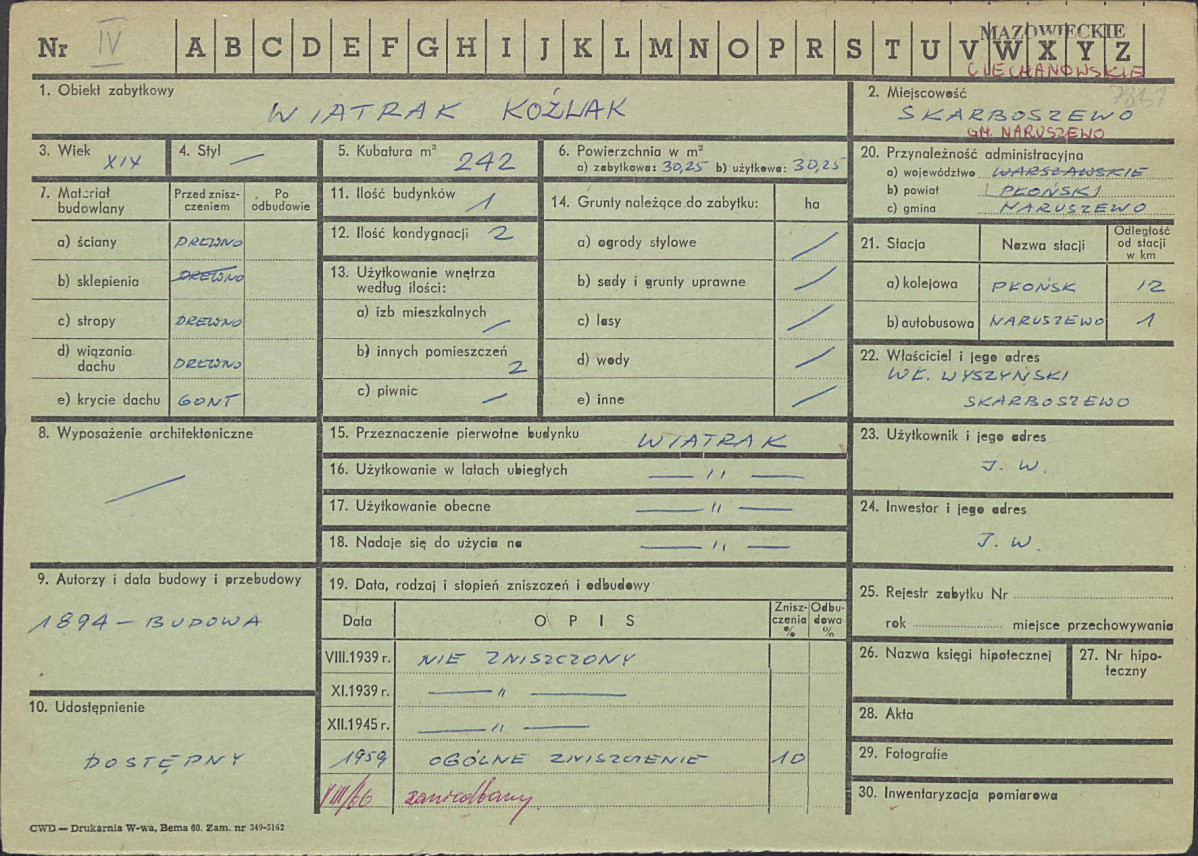 Nr IV A B C D E F G H I J K L M N O P R S T U V W X Y Z
MAZOWIECKIE
CIECHANOWSKIE
1. Obiekt zabytkowy
WIATRAK KOŹLAK
2. Miejscowość
SKARBOSZEWO
GM. NARUSZEWO
3. Wiek XIX
4. Styl —
5. Kubatura m³ 242
6. Powierzchnia w m²
a) zabytkowa: 30,25 b) użytkowa: 30,25
20. Przynależność administracyjna
a) województwo WARSZAWSKIE
b) powiat PŁOŃSKI
c) gmina NARUSZEWO
7. Materiał budowlany
Przed zniszczeniem
Po odbudowie
a) ściany DREWNO
b) sklepienia DREWNO
c) stropy DREWNO
d) wiązania dachu DREWNO
e) krycie dachu GONT
11. Ilość budynków 1
12. Ilość kondygnacji 2
13. Użytkowanie wnętrza
według ilości:
a) izb mieszkalnych —
b) innych pomieszczeń 2
c) piwnic —
14. Grunty należące do zabytku: ha
a) ogrody stylowe —
b) sady i grunty uprawne —
c) lasy —
d) wody —
e) inne —
21. Stacja Nazwa stacji Odległość od stacji w km
a) kolejowa PŁOŃSK 12
b) autobusowa NARUSZEWO 1
22. Właściciel i jego adres
WŁ. WYSZYŃSKI
SKARBOSZEWO
8. Wyposażenie architektoniczne
—
15. Przeznaczenie pierwotne budynku WIATRAK
16. Użytkowanie w latach ubiegłych — 〃 —
17. Użytkowanie obecne — 〃 —
18. Nadaje się do użycia na — 〃 —
23. Użytkownik i jego adres
J. W.
24. Inwestor i jego adres
J. W.
9. Autorzy i data budowy i przebudowy
1894 – BUDOWA
19. Data, rodzaj i stopień zniszczeń i odbudowy
Data OPIS Zniszczenia % Odbudowa %
VIII.1939 r. NIE ZNISZCZONY
XI.1939 r. — 〃 —
XII.1945 r. — 〃 —
1959 OGÓLNE ZNISZCZENIE 10
VIII/66 zaniedbany
25. Rejestr zabytku Nr
rok miejsce przechowywania
26. Nazwa księgi hipotecznej
27. Nr hipoteczny
28. Akta
29. Fotografie
30. Inwentaryzacja pomiarowa
10. Udostępnienie
DOSTĘPNY
CWD — Drukarnia W-wa, Bema 60. Zam. nr 349-5162